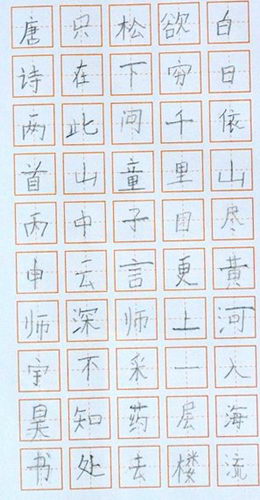 白日依山尽黄河入海流
欲穷千里目更上一层楼
松下问童子言师采药去
只在此山中云深不知处
唐诗两首丙申师宇昊书